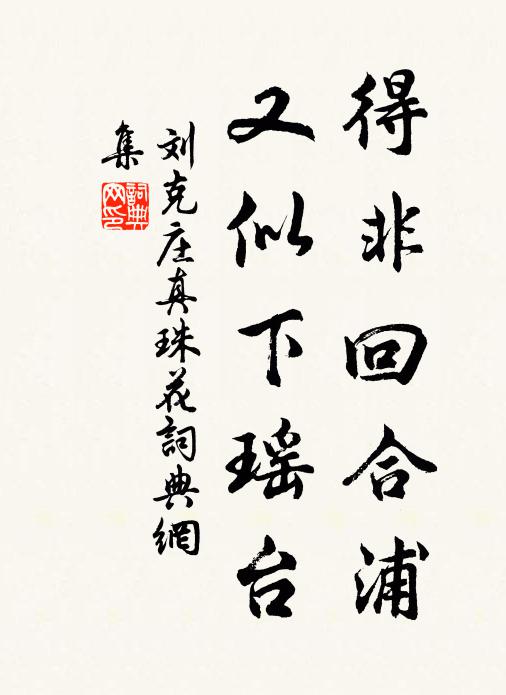 得非回合浦
又似下瑶台
刘克庄真珠花詞典網
集
詞典网印